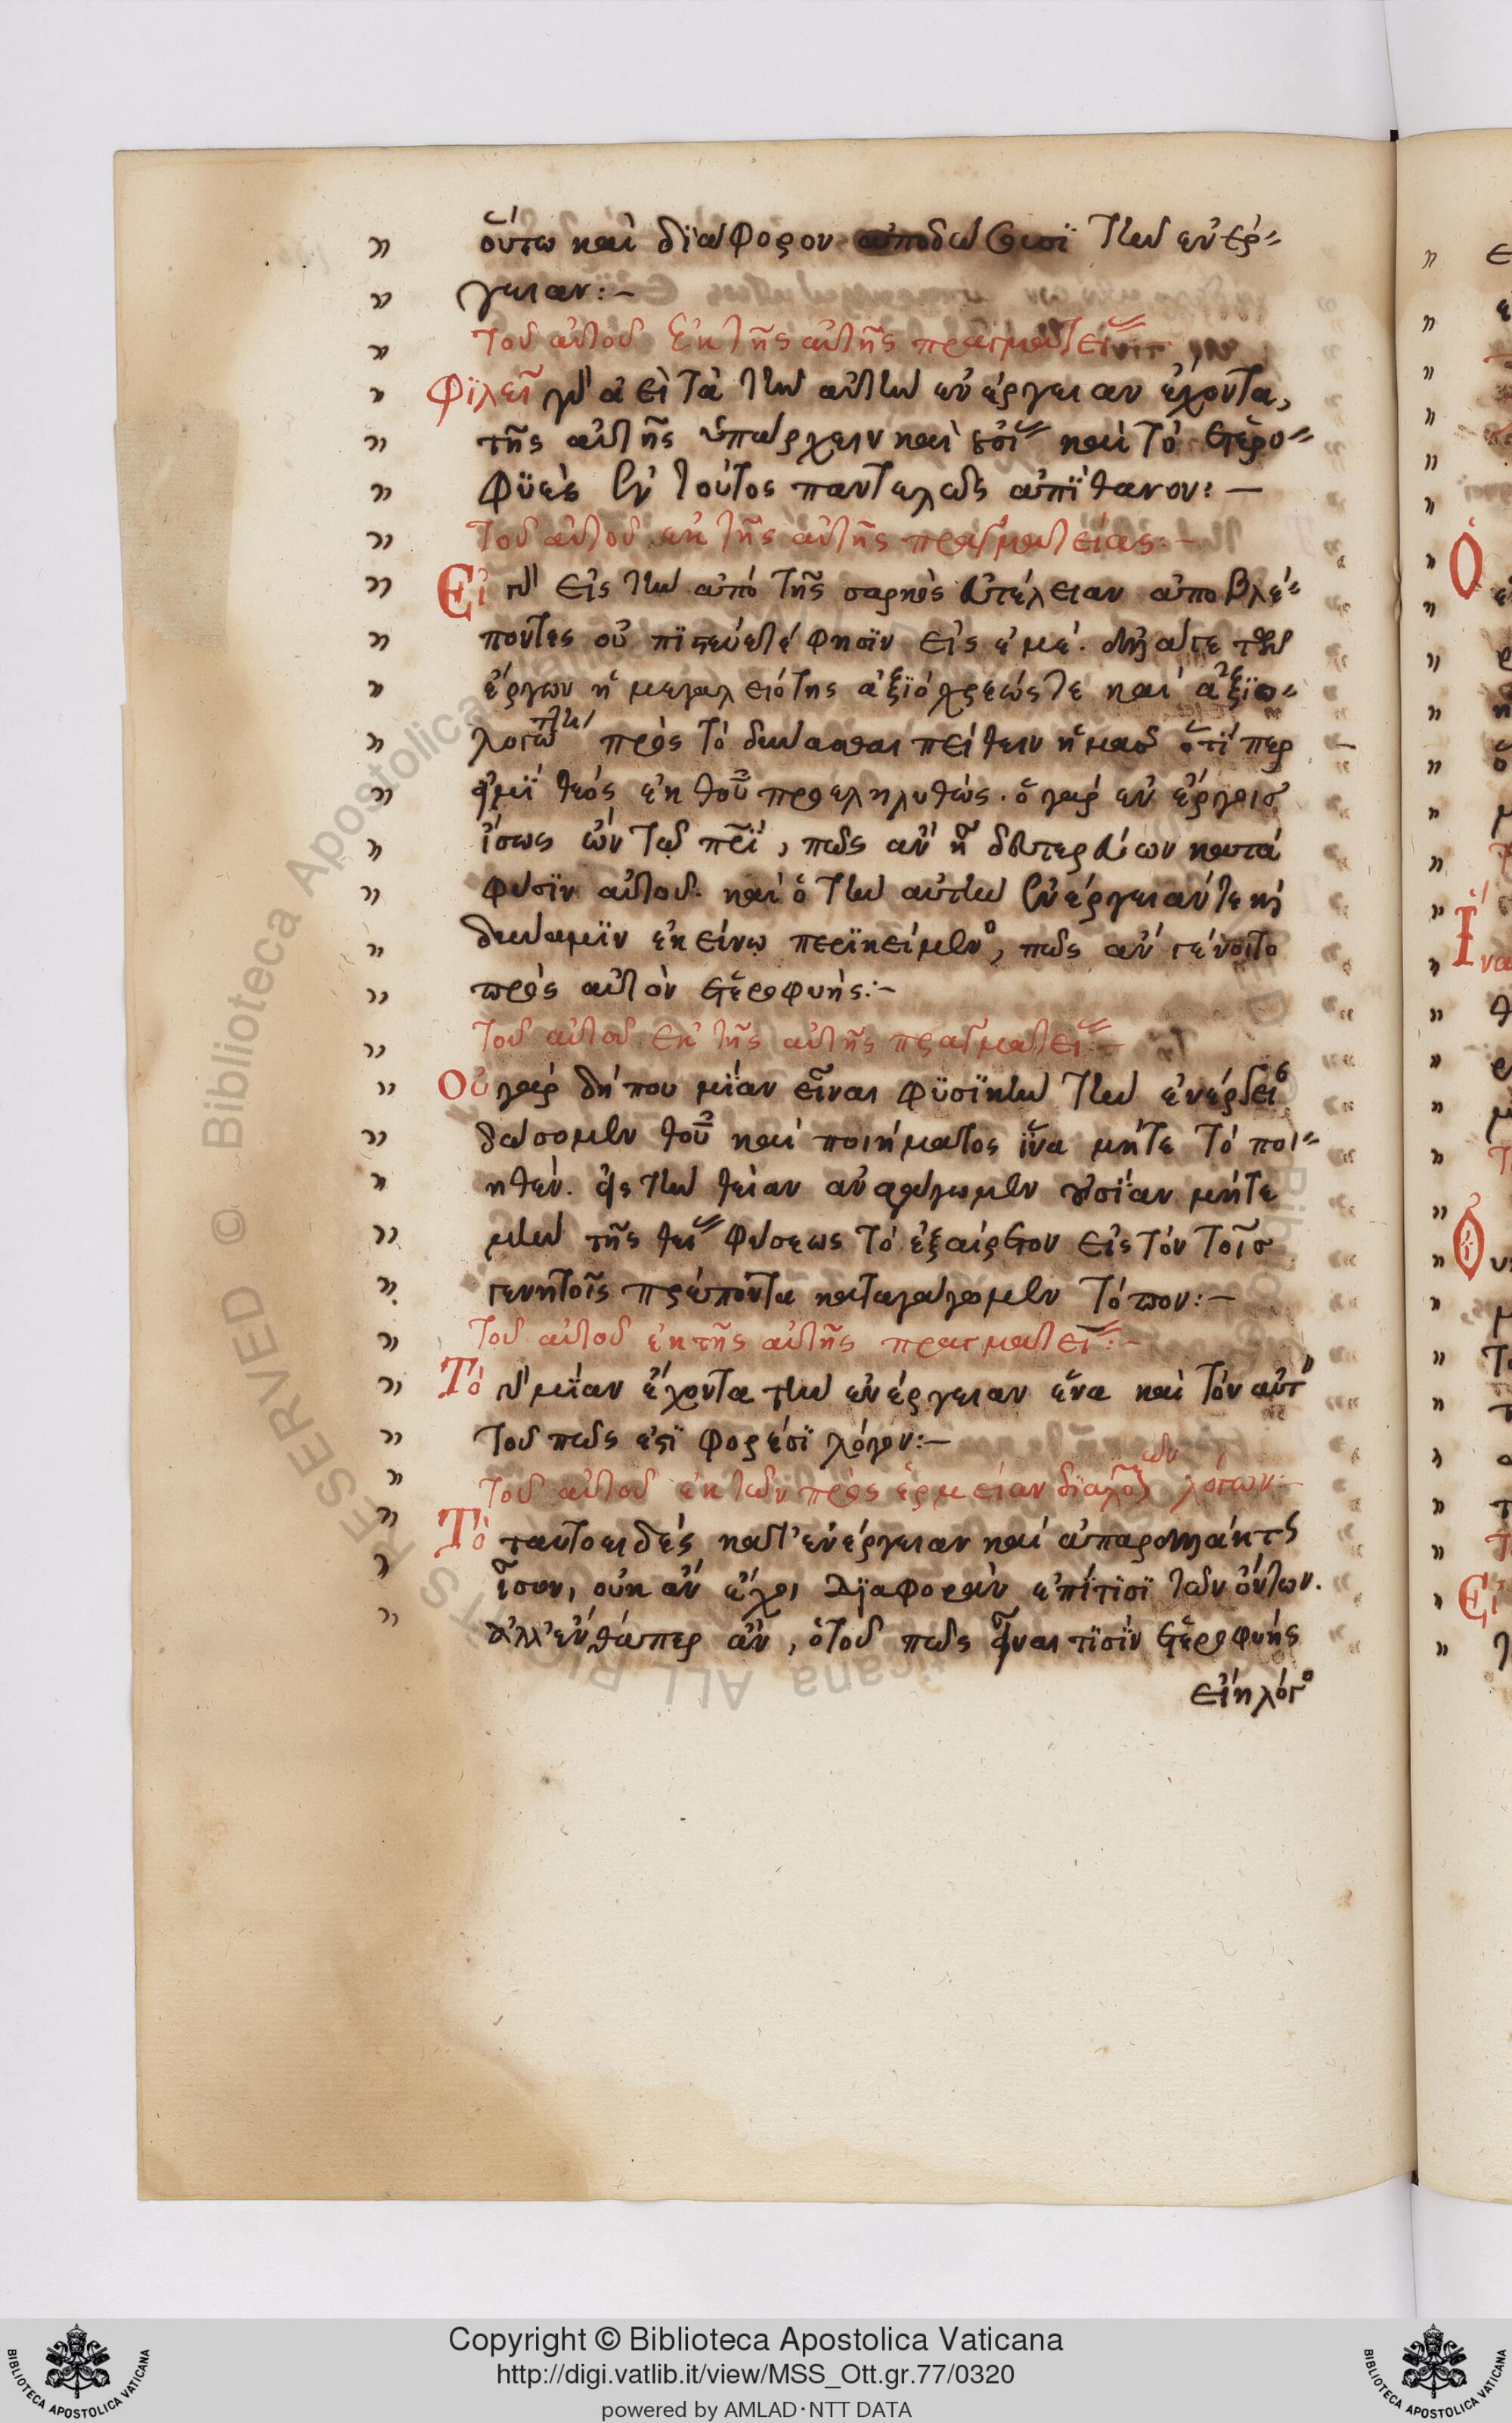 οὕτω καὶ διάφορον ἀποδώσωσι τὴν ἐνέρ-
γειαν:-
τοῦ αὐτοῦ ἐκ τῆς αὐτῆς πραγματεί
Φιλεῖ γὰρ ἀεὶ τὰ τὴν αὐτὴν ἐνέργειαν ἔχοντα,
τῆς αὐτῆς ὑπάρχειν καὶ καὶ τὸ ἑτερο-
φυὲς ἐν τούτοις παντελῶς ἀπίθανον:-
τοῦ αὐτοῦ ἐκ τῆς αὐτῆς πραγματείας:-
Εἰ γὰρ εἰς τὴν ἀπὸ τῆς σαρκὸς εὐτέλειαν ἀποβλέ-
ποντες οὐ πιστεύετέ φησιν εἰς ἐμέ. ἀλλ' τῶν
ἔργων ἡ μεγαλειότης ἀξιόχρεώς τε καὶ ἀξιο-
πρὸς τὸ δύνασθαι πείθειν ἡμᾶς ὅτί περ
εἰμὶ θεός ἐκ θεοῦ προεληλυθώς. ὁ γὰρ ἐν ἔργοις
ἴσως ὢν τῷ πρὶ, πῶς ἂν ἢ δευτερεύων κατὰ
φύσιν αὐτοῦ. καὶ ὁ τὴν αὐτὴν ἐνέργειάν τε καὶ
δύναμιν ἐκείνῳ περικείμενος, πῶς ἂν γένοιτο
πρὸς αὐτὸν ἑτεροφυής:-
τοῦ αὐτοῦ ἐκ τῆς αὐτῆς πραγματεί:-
Οὐ γὰρ δήπου μίαν εἶναι φυσικὴν τὴν ἐνέργειαν
δώσομεν θεοῦ καὶ ποιήματος ἵνα μήτε τὸ ποι-
ηθὲν. εἰς τὴν θείαν ἀναφέρωμεν οὐσίαν μήτε
μὴν τῆς θείας φύσεως τὸ ἐξαίρετον εἰς τὸν τοῖς
γενητοῖς πρέποντα καταγάγωμεν τόπον:-
τοῦ αὐτοῦ ἐκ τῆς αὐτῆς πραγματεί:-
Τὸ γὰρ μίαν ἔχοντα τὴν ἐνέργειαν ἕνα καὶ τὸν αὐτὸν
τοῦ πῶς ἐστὶ φορέσι λόγον:-
τοῦ αὐτοῦ ἐκ τῶν πρὸς ἑρμείαν διαλογικῶν λόγων:-
Τὸ ταυτοειδὲς κατ' ἐνέργειαν καὶ ἀπαραλλάκτως
ἴσον, οὐκ ἂν ἔχοι διαφορὰν ἐπί τισι τῶν ὄντων.
ἀλλ' ἔνθάπερ ἂν, ὁ τοῦ πῶς εἶναι τισὶν ἑτεροφυής
εἴη λόγος
Copyright © Biblioteca Apostolica Vaticana
http://digi.vatlib.it/view/MSS_Ott.gr.77/0320
powered by AMLAD·NTT DATA